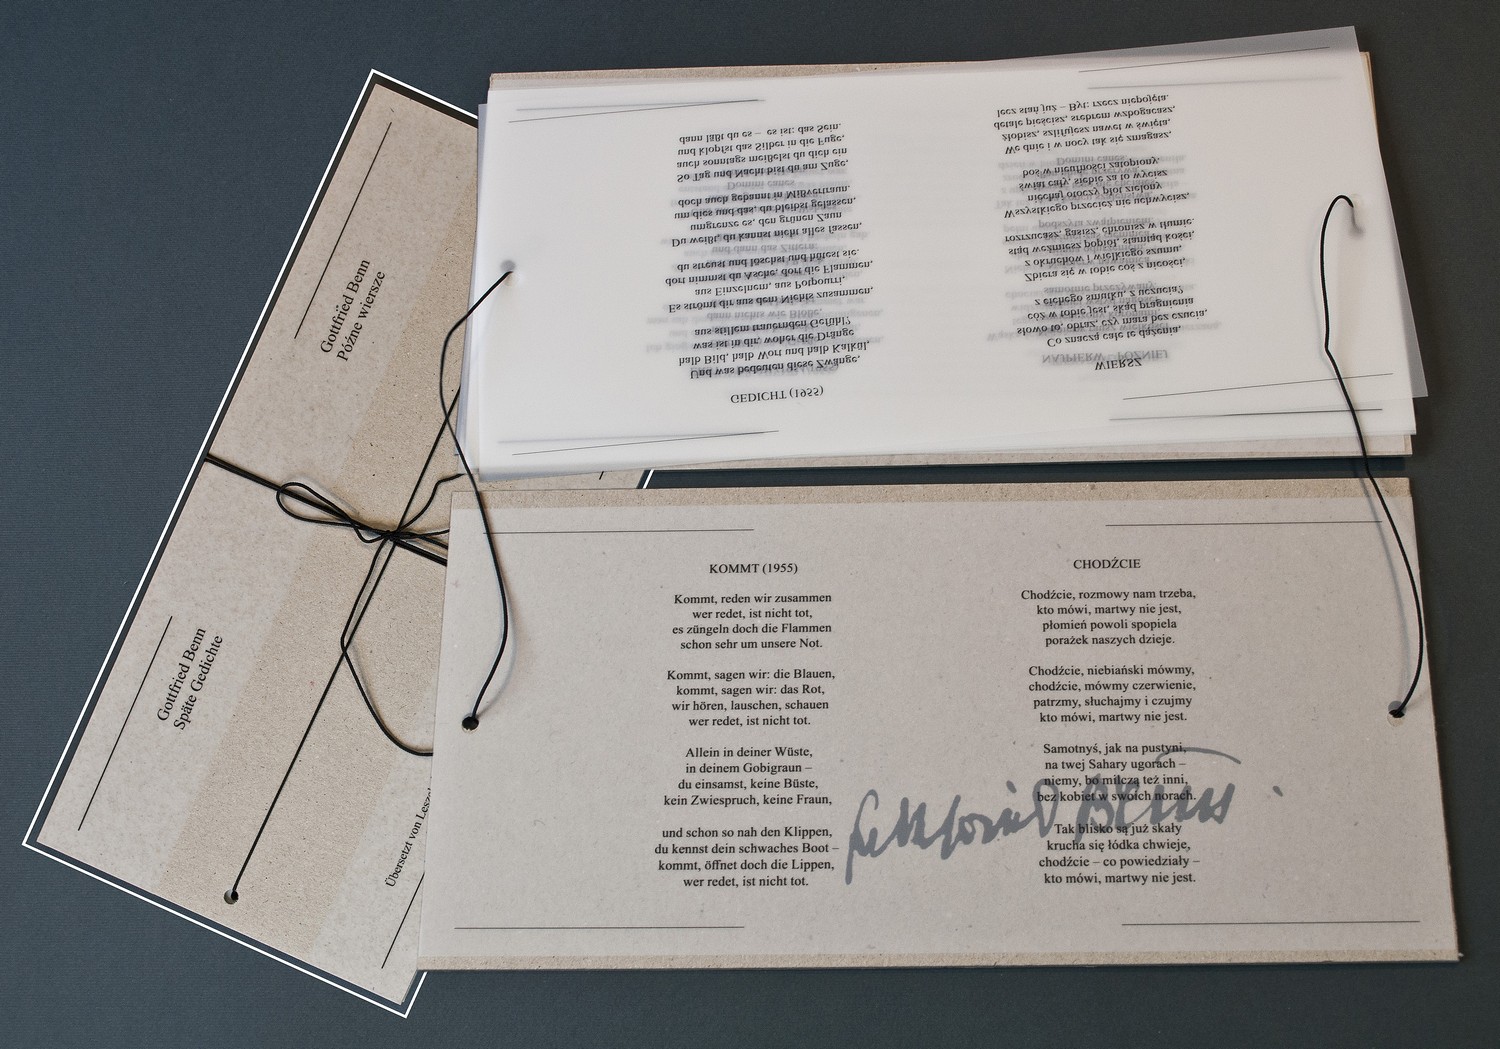 Gottfried Benn
Późne wiersze
Gottfried Benn
Späte Gedichte
Übersetzt von
GEDICHT (1955)
Und was bedeuten diese Zwänge,
halb Bild, halb Wort und halb Kalkül,
was ist in dir, woher die Dränge
aus stillem trauernden Gefühl?
Es strömt dir aus dem Nichts zusammen,
aus Einzelnem, aus Potpourri,
dort nimmst du Asche, dort die Flammen,
du streust und löschst und hütest sie.
Du weißt, du kannst nicht alles fassen,
umgrenze es, den grünen Zaun
um dies und das, du bleibst gelassen,
doch auch gebannt in Mißvertraun.
So Tag und Nacht bist du am Zuge,
auch sonntags meißelst du dich ein
und klopfst das Silber in die Fuge,
dann läßt du es – es ist: das Sein.
WIERSZ
Co znaczą całe te dążenia,
słowo to, obraz, czy mara bez czucia,
cóż w tobie jest, skąd pragnienia
z cichego smutku, z uczucia?
Zbiera się w tobie coś z nicości,
z okruchów i wielkiego szumu,
stąd weźmiesz popiół, stamtąd kości,
rozrzucasz, gasisz, chronisz w tłumie.
Wszystkiego przecież nie uchwycisz,
niechaj otoczy płot zielony
świat cały, siebie za to wycisz
boś w nieufności zatopiony.
We dnie i w nocy tak się zmagasz,
żłobisz, szlifujesz nawet w święta,
detale pieścisz, srebrem wzbogacasz,
lecz stań już – Byt: rzecz niepojęta.
NAJPIERW – PÓŹNIEJ
KOMMT (1955)
Kommt, reden wir zusammen
wer redet, ist nicht tot,
es züngeln doch die Flammen
schon sehr um unsere Not.
Kommt, sagen wir: die Blauen,
kommt, sagen wir: das Rot,
wir hören, lauschen, schauen
wer redet, ist nicht tot.
Allein in deiner Wüste,
in deinem Gobigraun –
du einsamst, keine Büste,
kein Zwiespruch, keine Fraun,
und schon so nah den Klippen,
du kennst dein schwaches Boot –
kommt, öffnet doch die Lippen,
wer redet, ist nicht tot.
CHODŹCIE
Chodźcie, rozmowy nam trzeba,
kto mówi, martwy nie jest,
płomień powoli spopiela
porażek naszych dzieje.
Chodźcie, niebiański mówmy,
chodźcie, mówmy czerwienie,
patrzmy, słuchajmy i czujmy
kto mówi, martwy nie jest.
Samotnyś, jak na pustyni,
na twej Sahary ugorach –
niemy, bo milczą też inni,
bez kobiet w swoich norach.
Tak blisko są już skały
krucha się łódka chwieje,
chodźcie – co powiedziały –
kto mówi, martwy nie jest.
Gottfried Benn